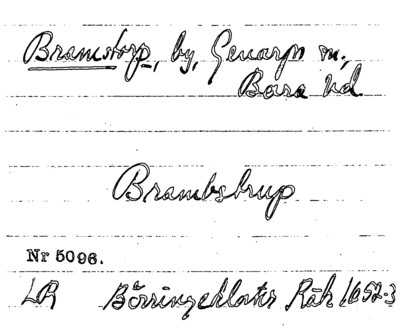 Bramstorp, by, Genarps sn,
Bara hd
Brambstrup
Nr 5096.
LR Börringekloster Räk 1652-3